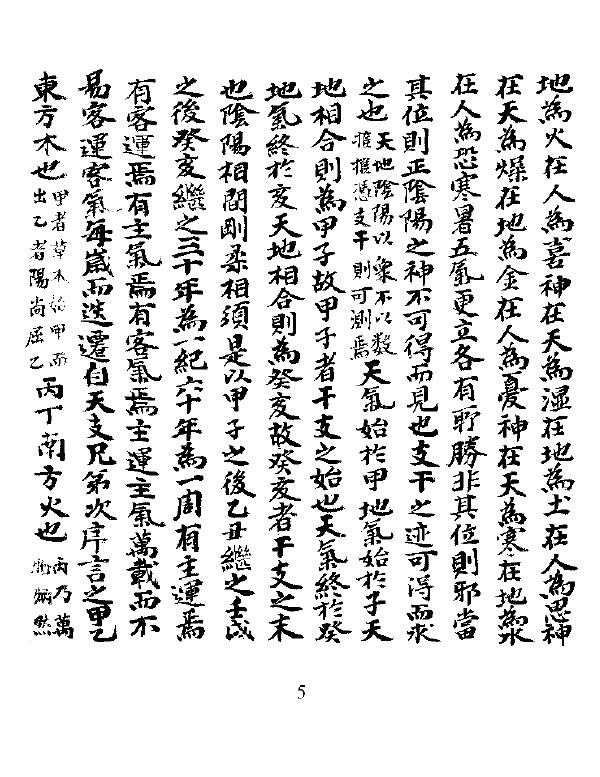 地為火在人為喜神在天為湿在地為土在人為思神
在天為燥在地為金在人為憂神在天為寒在地為水
在人為恐寒暑五氣更立各有所勝非其位則邪當
其位則正陰陽之神不可得而見也支干之迹可得而求
之也天地陰陽以象不以数推推憑支干則可測焉天氣始於甲地氣始於子天
地相合則為甲子故甲子者干支之始也天氣終於癸
地氣終於亥天地相合則為癸亥故癸亥者干支之末
也陰陽相間剛柔相須是以甲子之後乙丑繼之壬戌
之後癸亥繼之三十年為一紀六十年為一周有主運焉
有客運焉有主氣焉有客氣焉主運主氣萬載而不
易客運客氣每歲而迭遷自天支兄弟次序言之甲乙
東方木也甲者草木始甲而出乙者陽尚屈乙丙丁南方火也丙乃萬物炳然
5